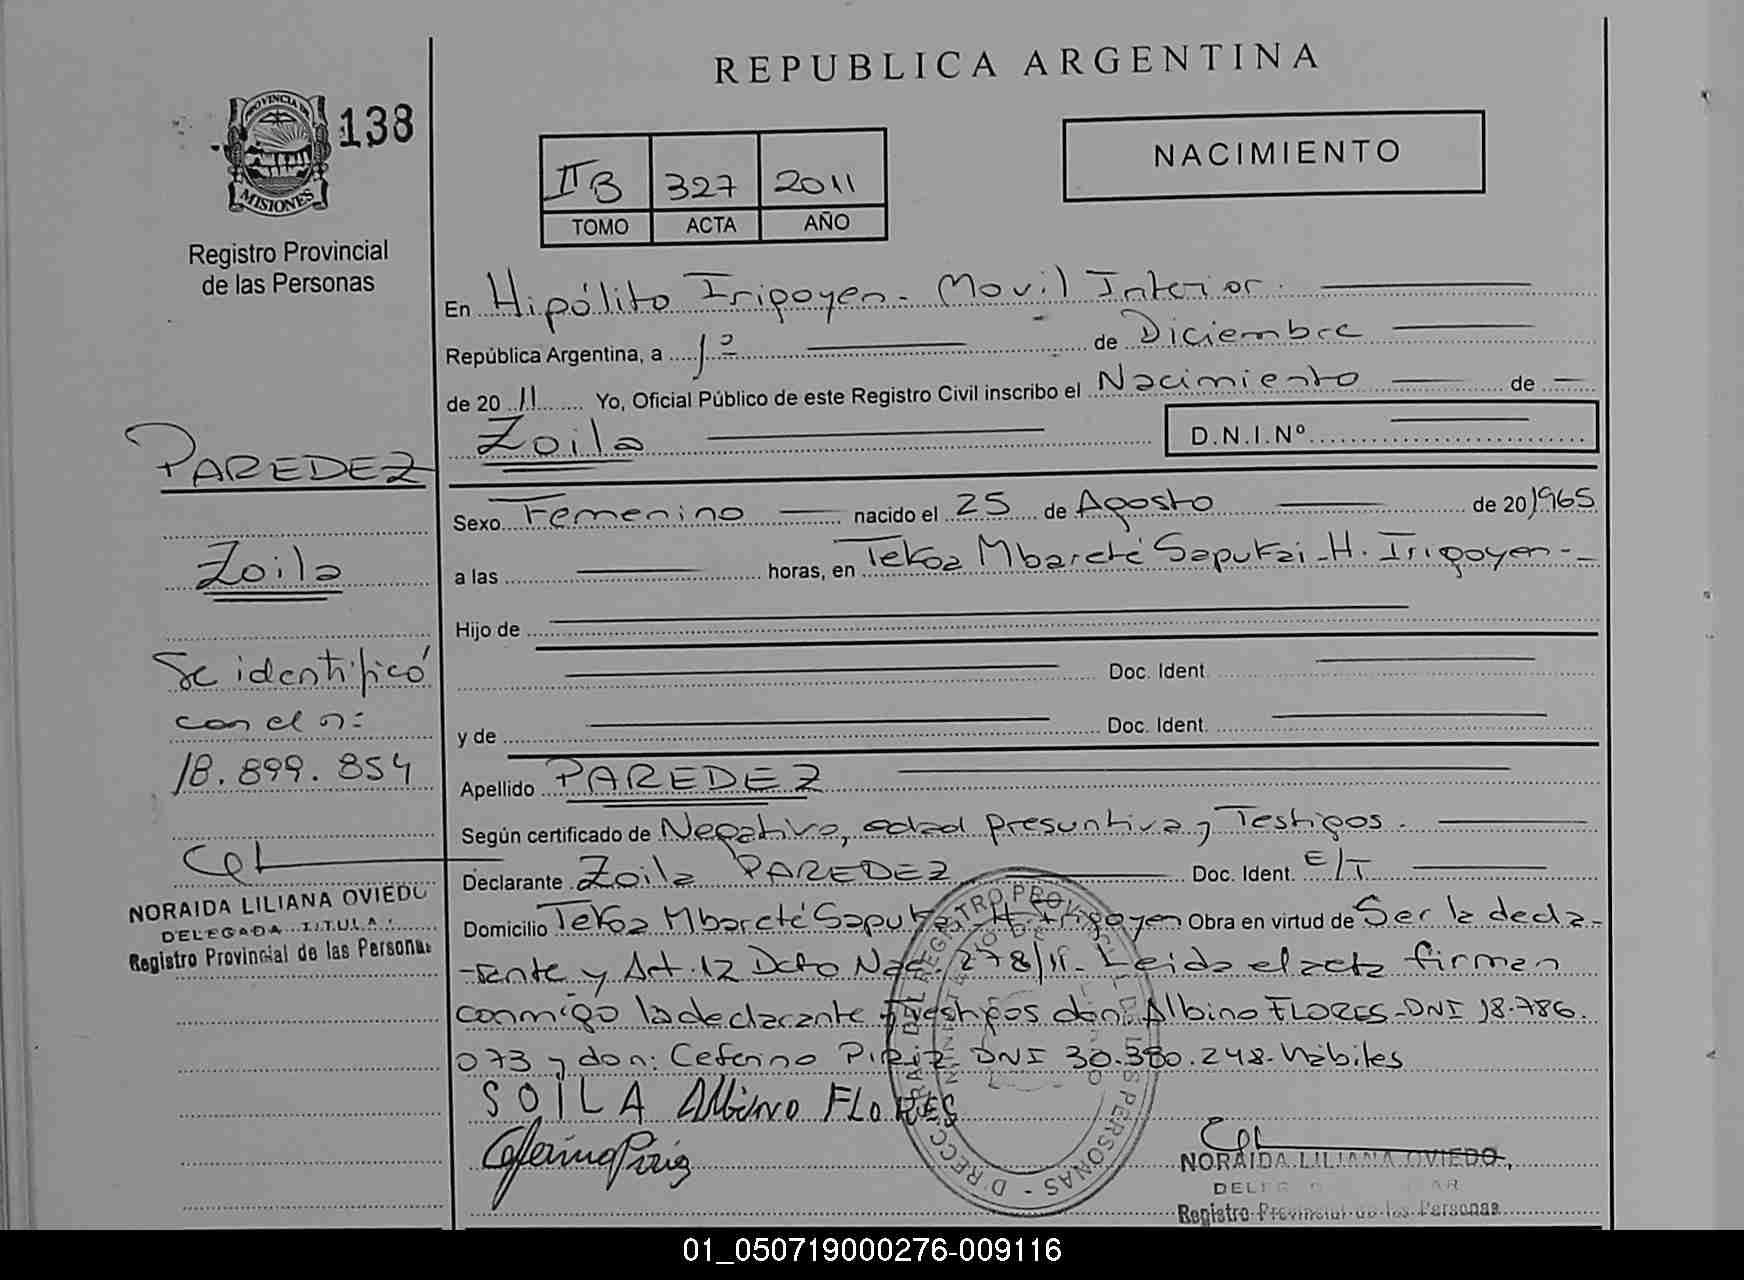 REPUBLICA ARGENTINA
PROVINCIA DE
MISIONES
138
Registro Provincial
de las Personas
II B 327 2011
TOMO ACTA AÑO
NACIMIENTO
En Hipólito Irigoyen - Movil Interior.
República Argentina, a 1º de Diciembre
de 20 11 Yo, Oficial Público de este Registro Civil inscribo el Nacimiento de
Zoila
D.N.I.Nº
Sexo Femenino nacido el 25 de Agosto de 20 1965
a las horas, en Tekoa Mbareté Sapukai - H. Irigoyen -
Hijo de
Doc. Ident.
y de Doc. Ident.
Apellido PAREDEZ
Según certificado de Negativo, edad presuntiva y Testigos.
Declarante Zoila PAREDEZ Doc. Ident. E/T
Domicilio Tekoa Mbareté Sapukai - H. Irigoyen Obra en virtud de Ser la decla-
rante y Art. 12 Dcto Nac. 278/11. Leida el acta firman
conmigo la declarante y testigos don: Albino FLORES - DNI 18.786.
073 y don: Ceferino Piriz DNI 30.380.248. hábiles
SOILA Albino FLORES
Ceferino Piriz
NORAIDA LILIANA OVIEDO
Registro Provincial de las Personas
PAREDEZ
Zoila
Se identificó
con el n:
18.899.854
NORAIDA LILIANA OVIEDO
DELEGADA TITULAR
Registro Provincial de las Personas
01_050719000276-009116